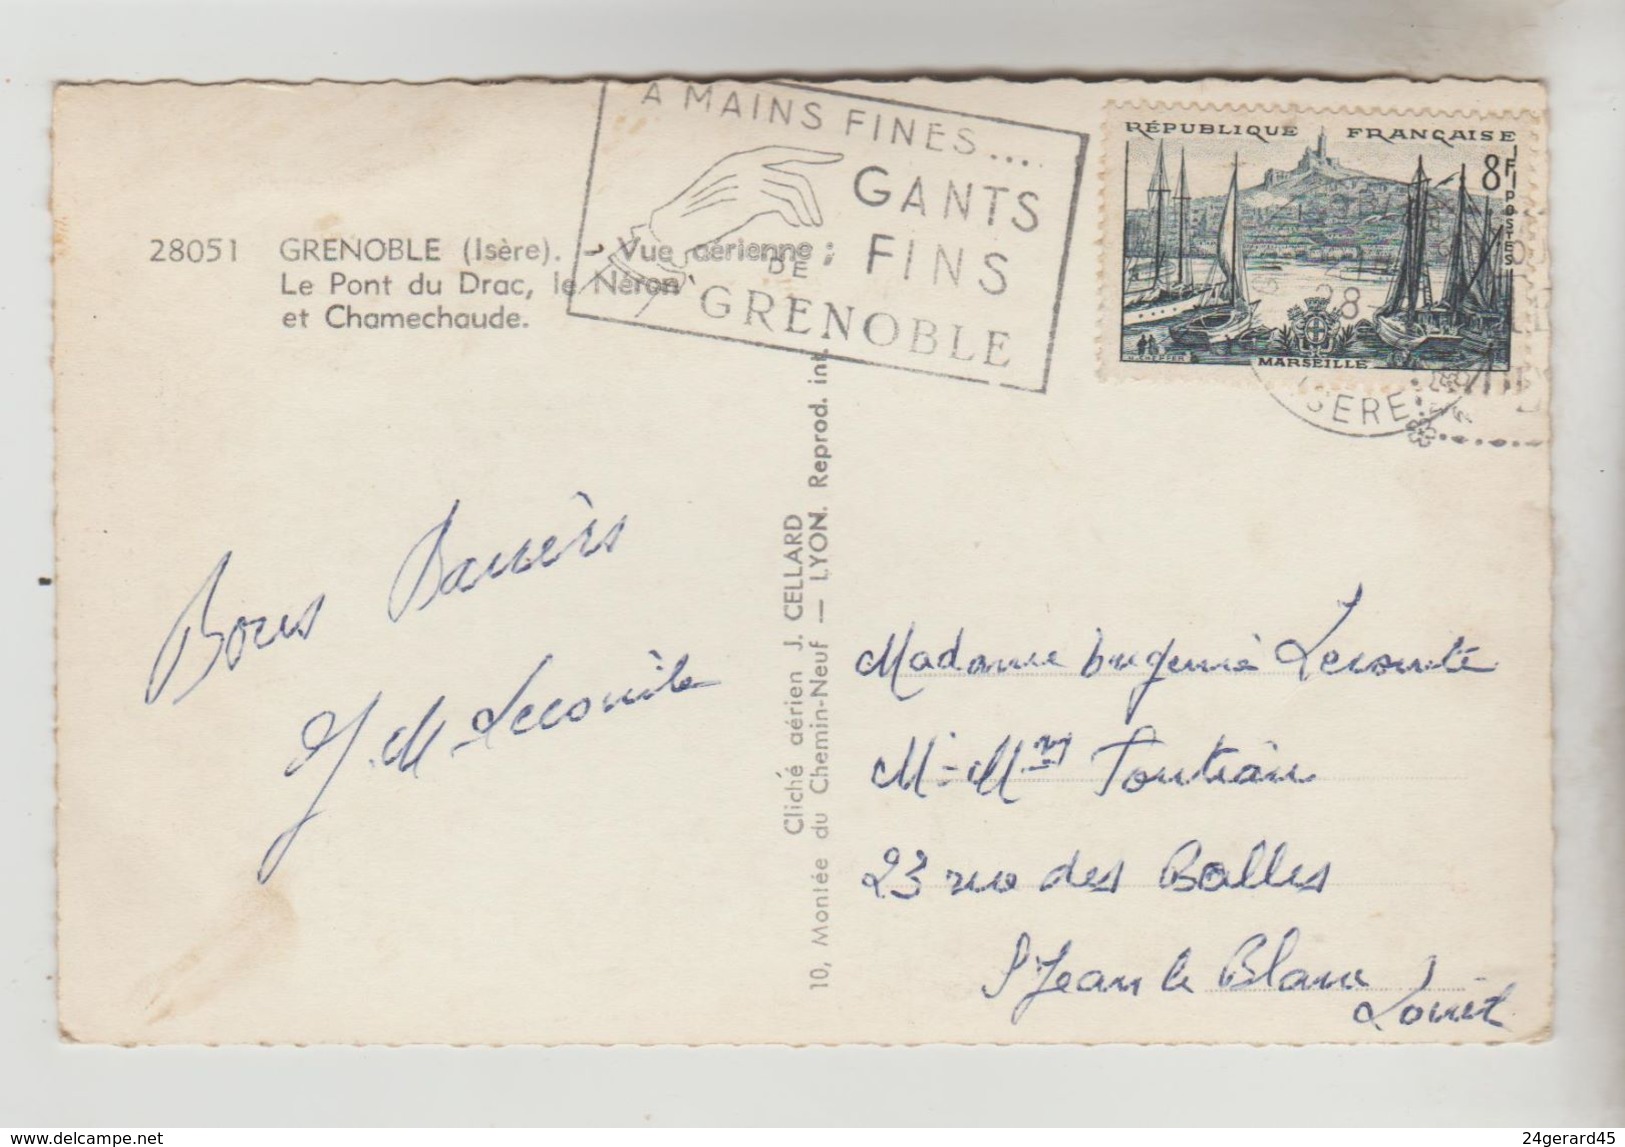 A MAINS FINES....
GANTS
FINS
DE
GRENOBLE
RÉPUBLIQUE FRANÇAISE
8F
POSTES
MARSEILLE
28
ISERE
28051 GRENOBLE (Isère). - Vue aérienne :
Le Pont du Drac, le Néron
et Chamechaude.
Cliché aérien J. CELLARD
10, Montée du Chemin-Neuf — LYON. Reprod. int.
Bons Baisers
J. M. Lecomte
Madame Eugenie Lecomte
M-Mme
23 rue des Balles
St Jean le Blanc
Loiret
24gerard45
www.delcampe.net